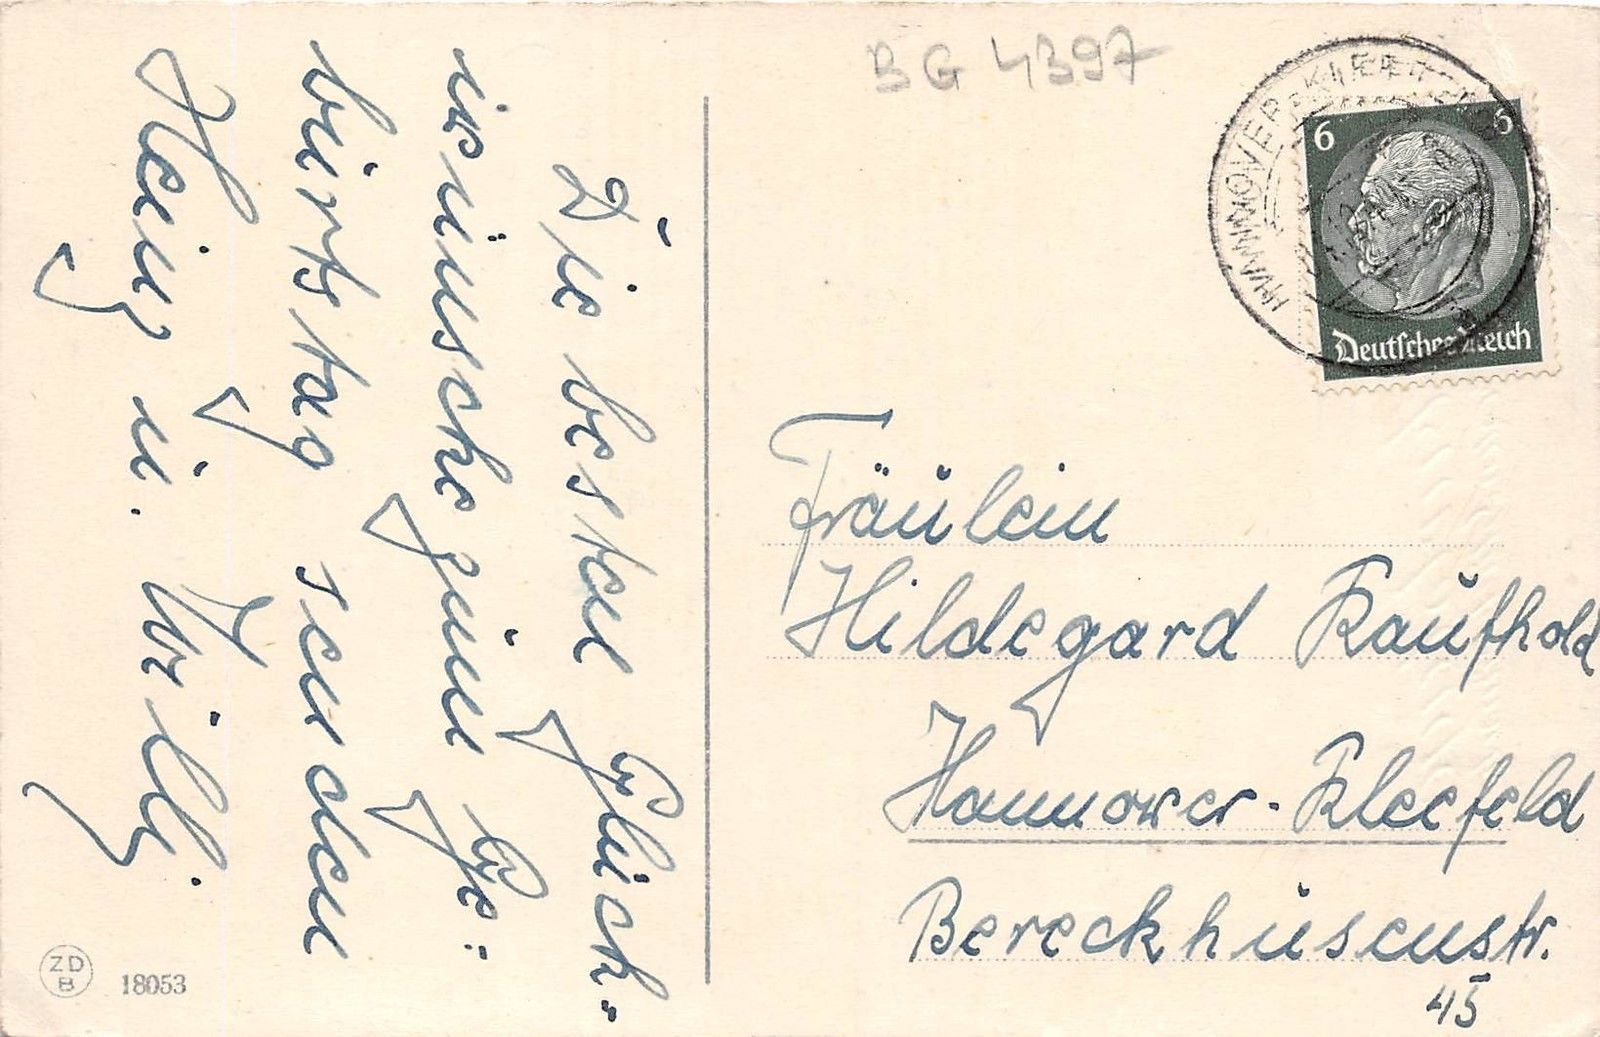 BG 4397
HANNOVER-KLEEFELD
6 6
Deutsches Reich
Die besten Glück-
wünsche zum Ge-
burtstag senden
Heinz u. Willy.
Fräulein
Hildegard Kaufhold
Hannover-Kleefeld
Bereckhusenstr.
45
ZD
B
18053